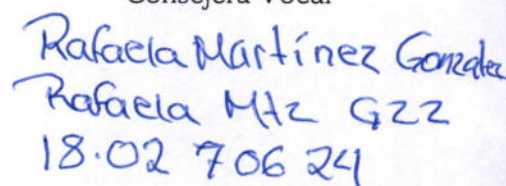 Consejera Vocal
Rafaela Martínez Gonzalez
Rafaela Mtz Gzz
18.02 706 24